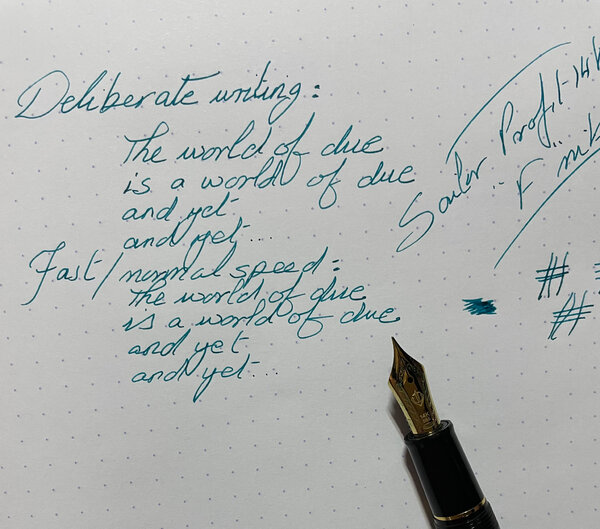 Deliberate writing:
The world of due
is a world of due
and yet
and yet...
Fast/normal speed:
the world of due
is a world of due
and yet
and yet...
Sailor Profit-14k
F
##
##